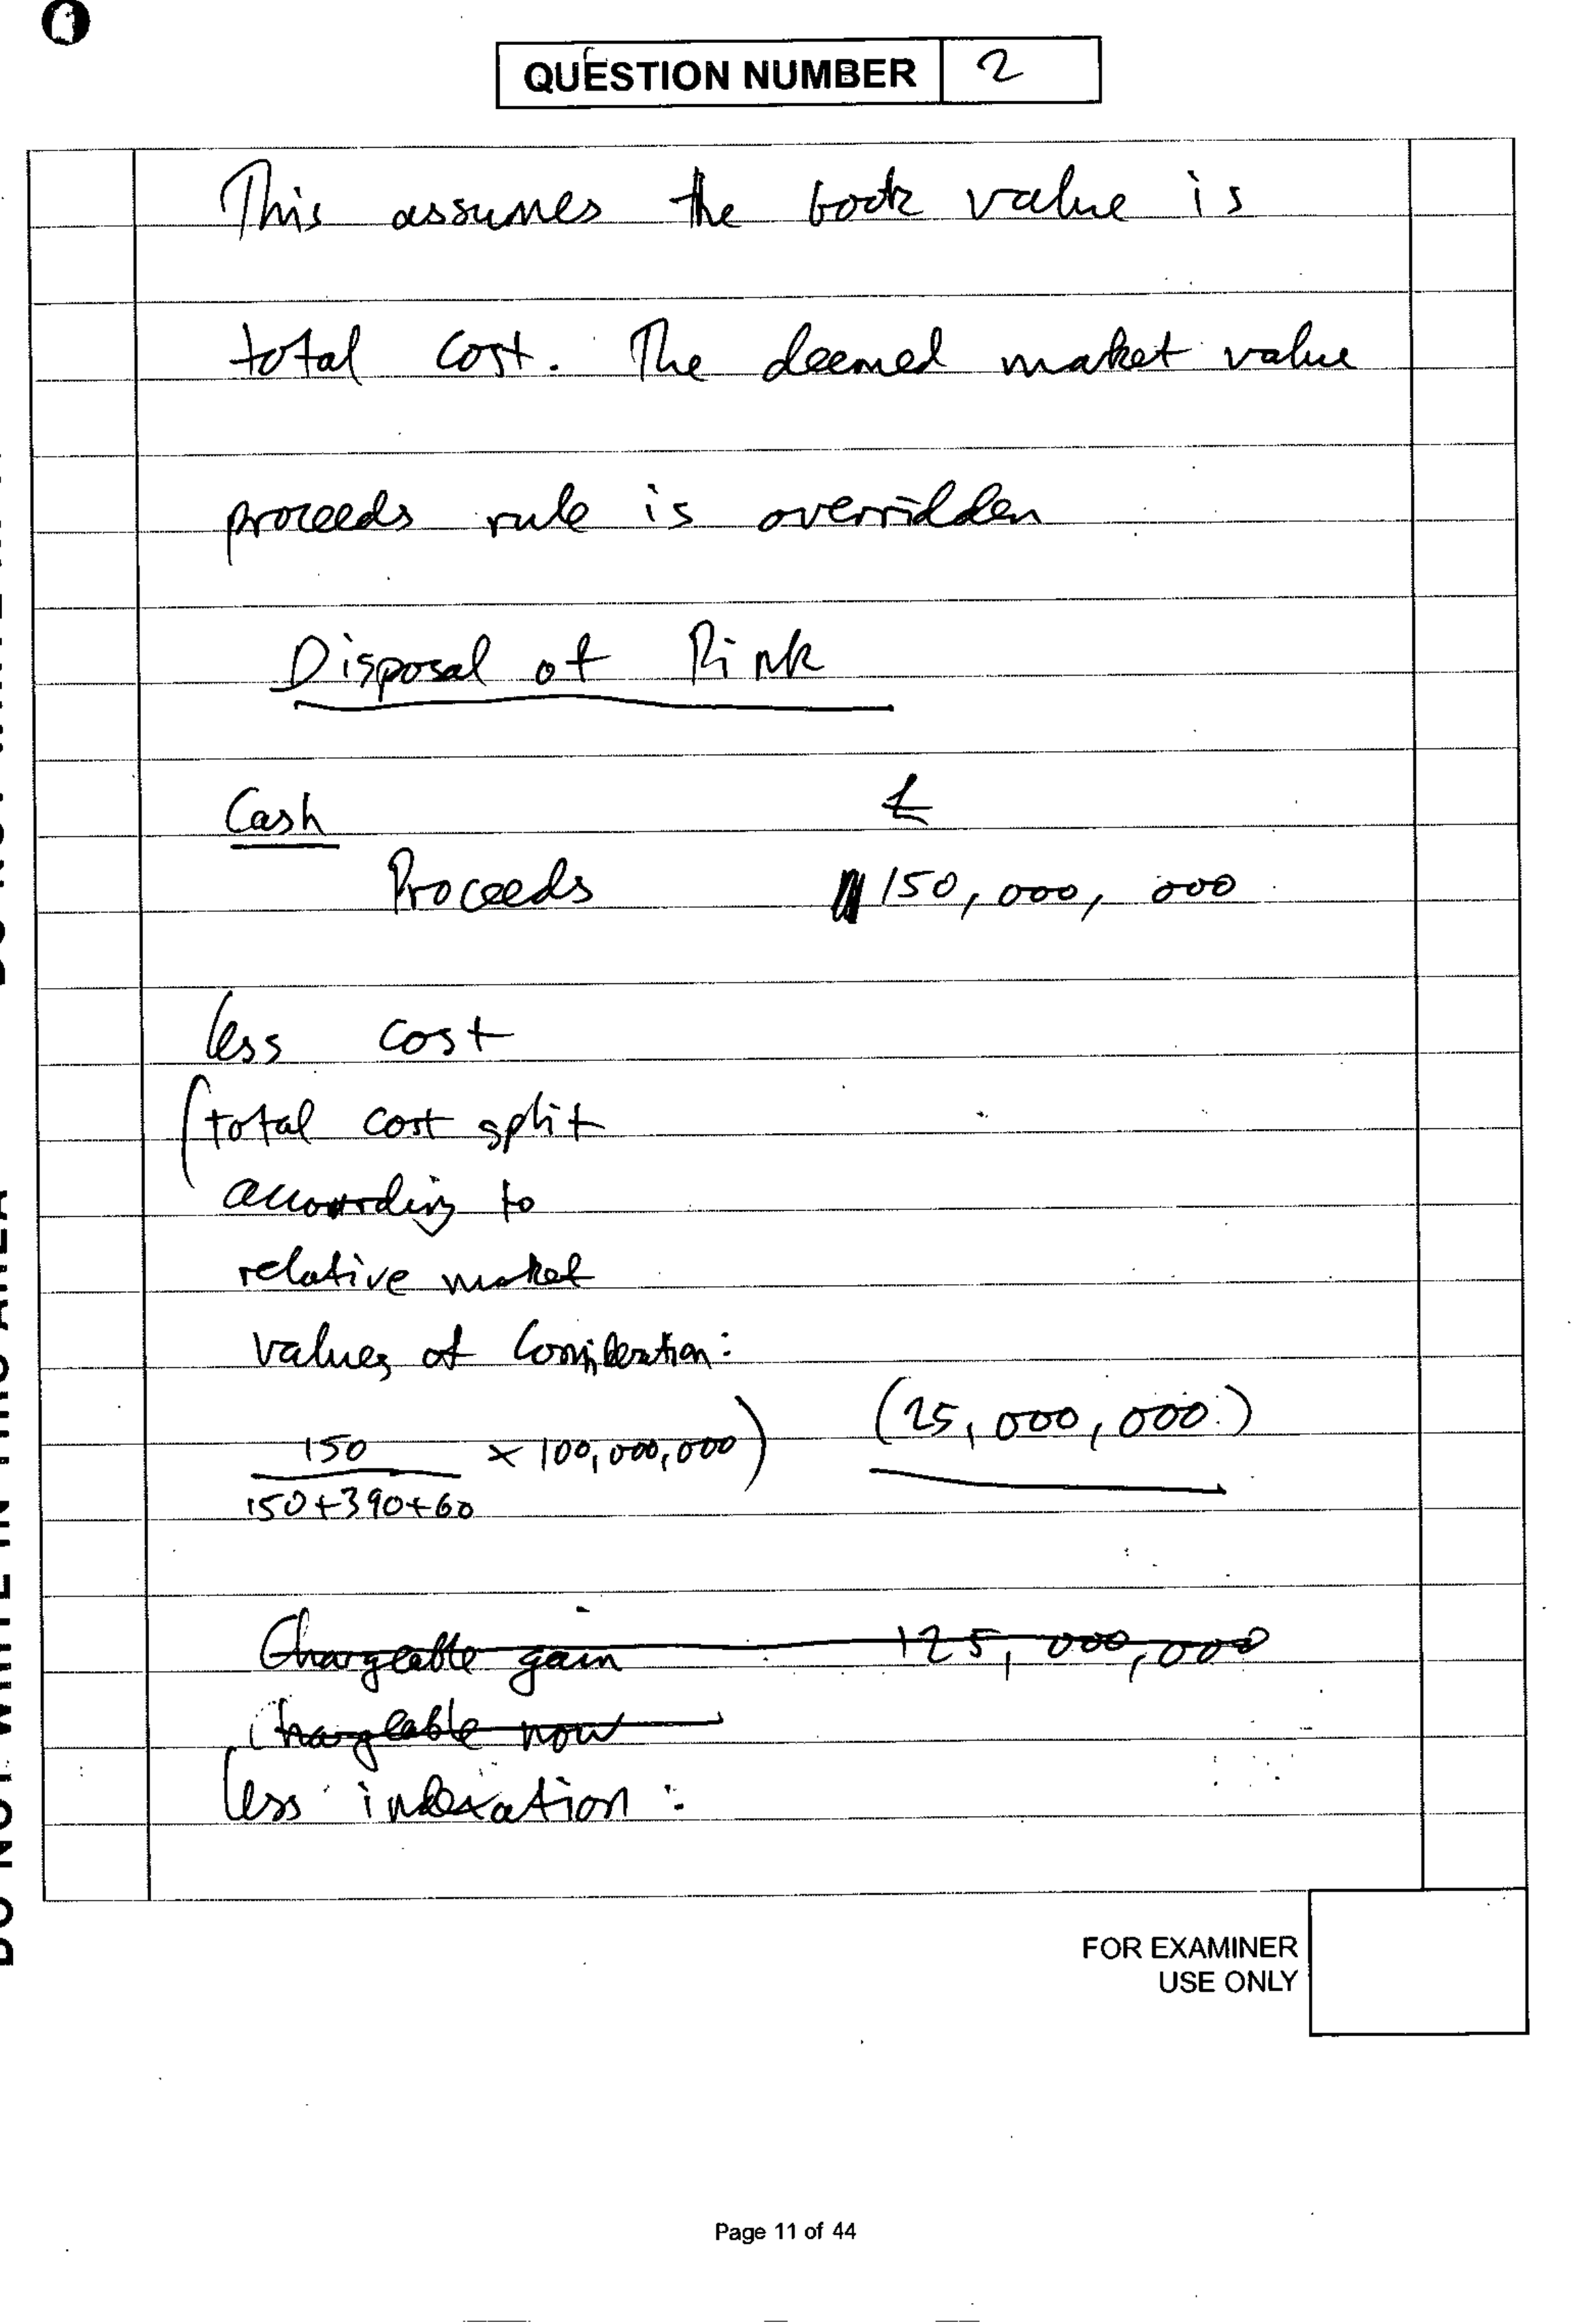 QUESTION NUMBER 2
This assumes the book value is
total cost. The deemed market value
proceeds rule is overridden
Disposal of Pink
Cash £
Proceeds 150,000,000
less cost
(total cost split
according to
relative market
values of consideration:
150 / 150+390+60 × 100,000,000) (25,000,000)
Chargeable gain 125,000,000
Chargeable now
less indexation:
FOR EXAMINER
USE ONLY
Page 11 of 44